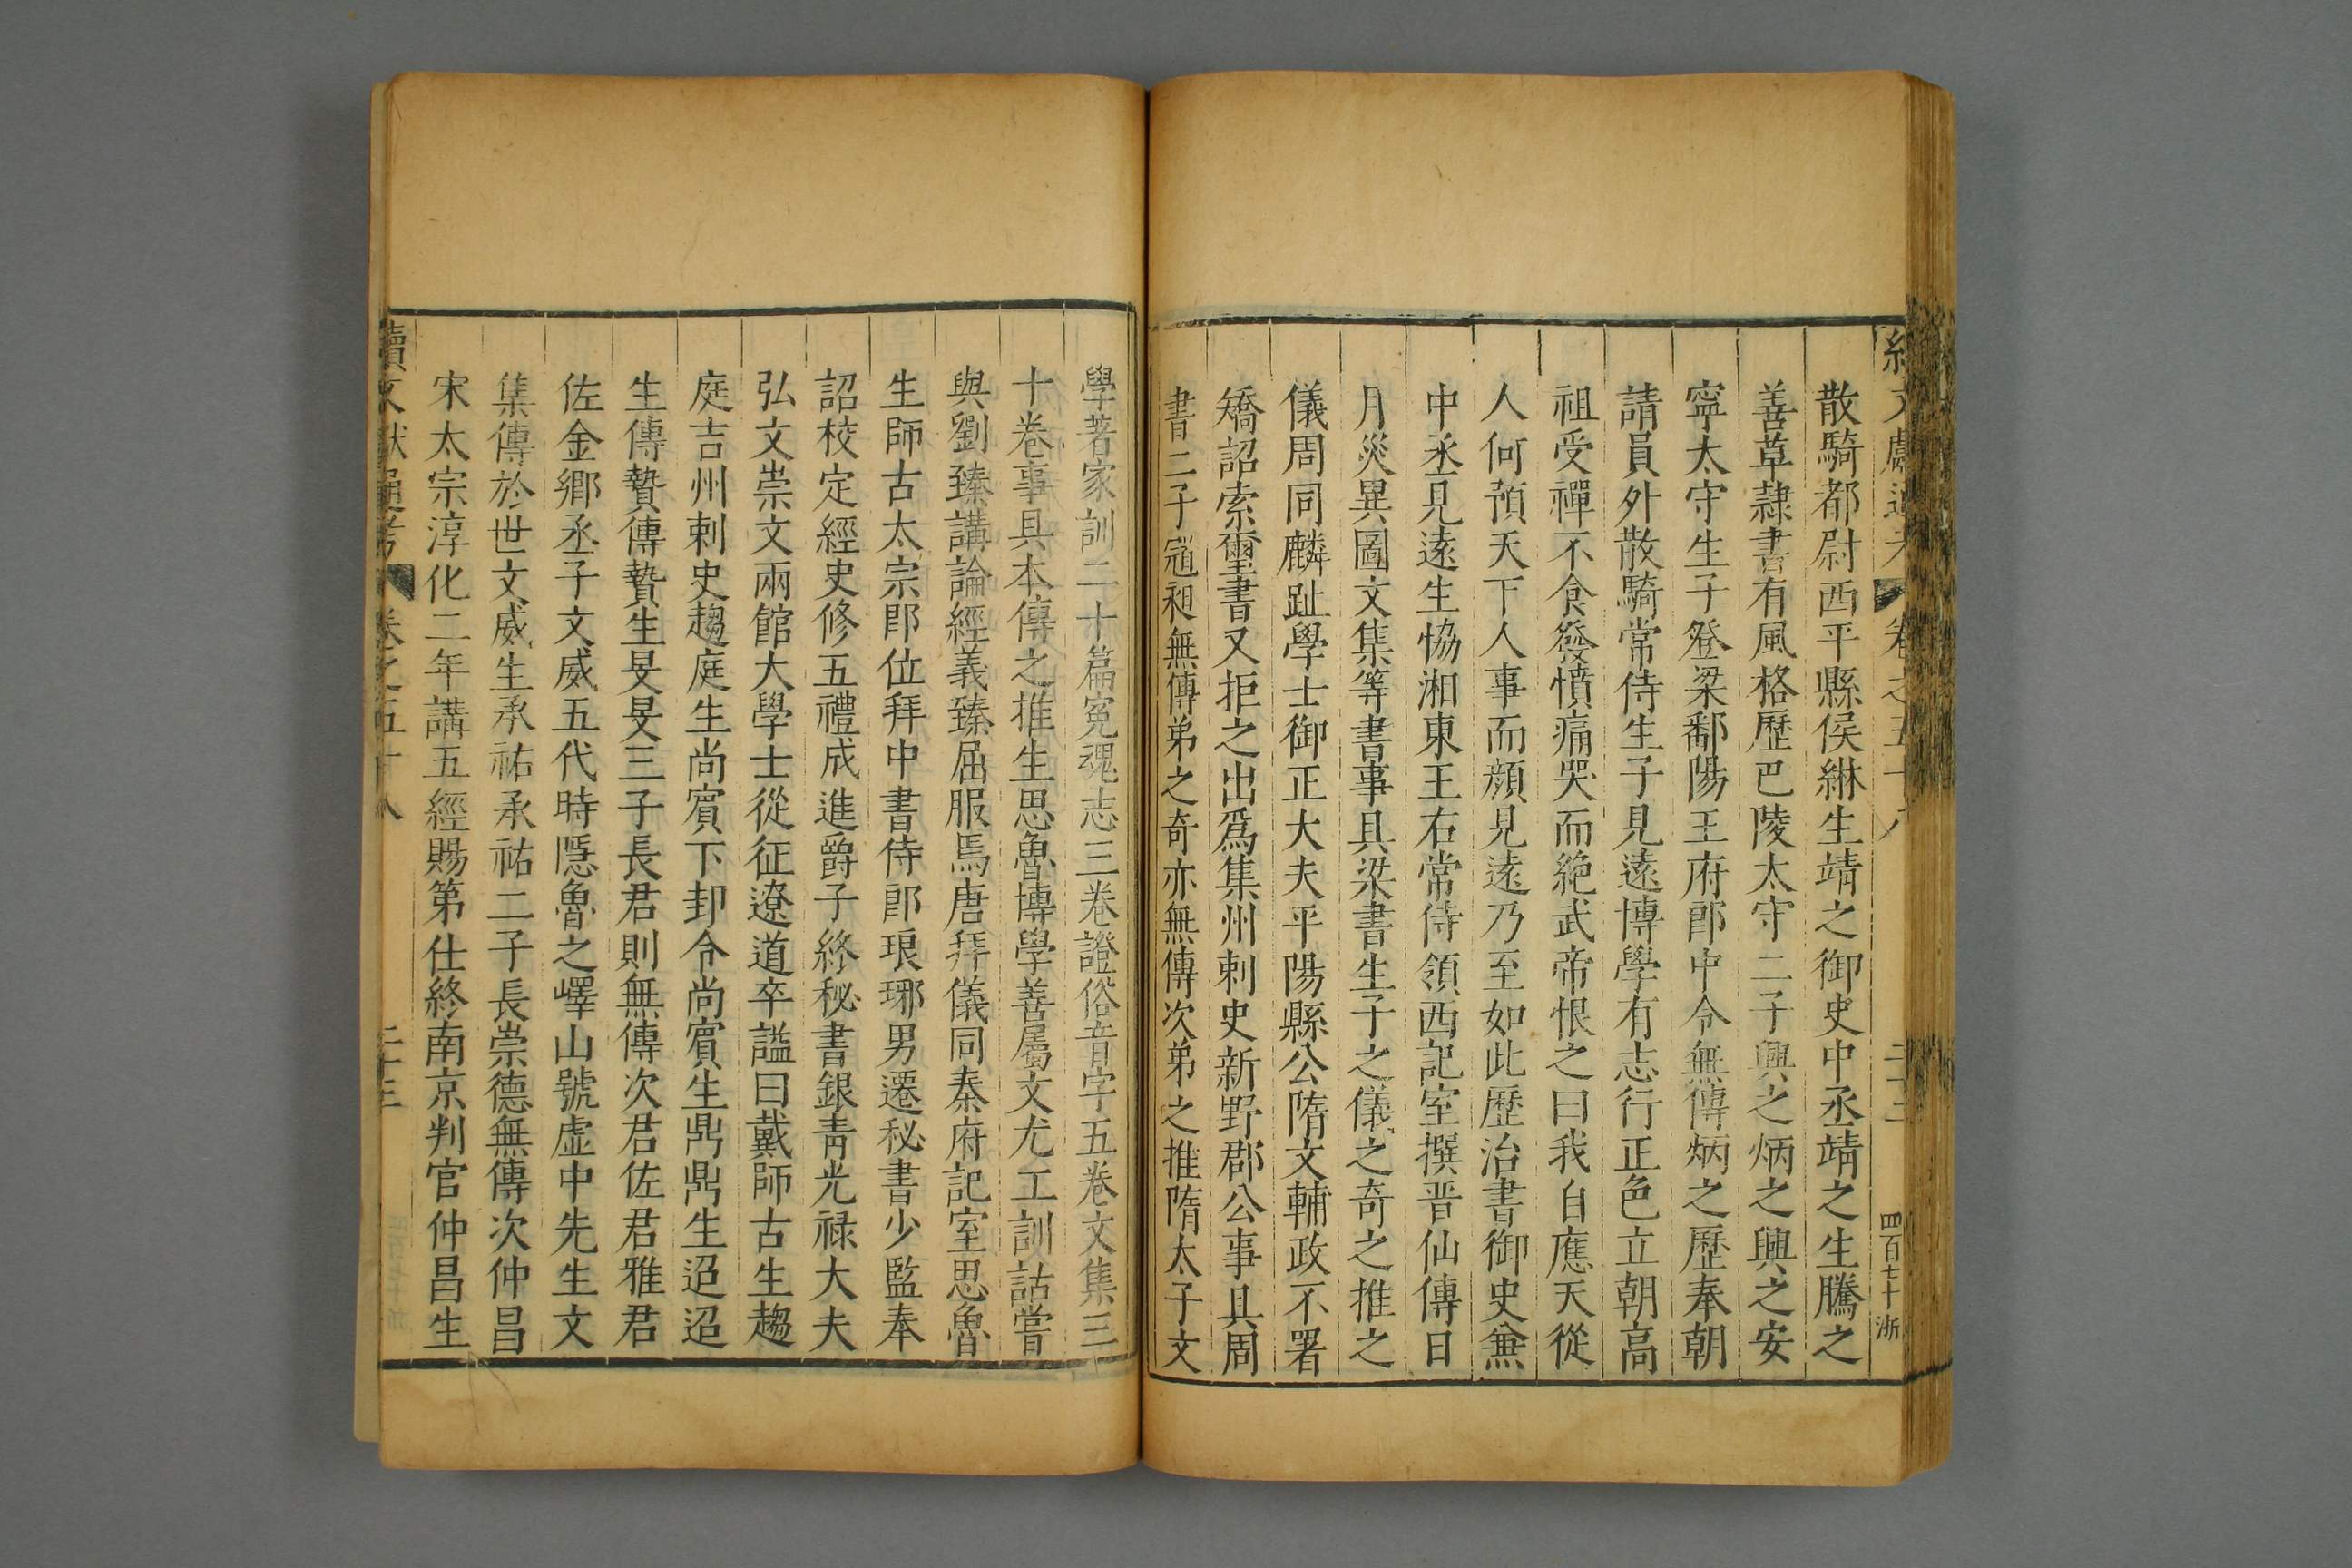 續文獻通考 卷之五十八 二十二 四百七十 浙
散騎都尉西平縣侯綝生靖之御史中丞靖之生騰之
善草隷書有風格歷巴陵太守二子興之炳之興之安
寧太守生子豋梁鄱陽王府郎中令無傳炳之歷奉朝
請員外散騎常侍生子見遠博學有志行正色立朝高
祖受禪不食發憤痛哭而絶武帝恨之曰我自應天從
人何預天下人事而顔見遠乃至如此歷治書御史兼
中丞見遠生恊湘東王右常侍領西記室撰晋仙傳日
月災異圖文集等書事具梁書生子之儀之奇之推之
儀周同麟趾學士御正大夫平陽縣公隋文輔政不署
矯詔索璽書又拒之出爲集州刺史新野郡公事具周
書二子𡨥昶無傳弟之奇亦無傳次弟之推隋太子文
學著家訓二十篇寃魂志三卷證俗音字五卷文集三
十卷事具本傳之推生思魯博學善屬文尤工訓詁嘗
與劉臻講論經義臻屈服焉唐拜儀同秦府記室思魯
生師古太宗即位拜中書侍郎琅琊男遷秘書少監奉
詔校定經史修五禮成進爵子終秘書銀青光禄大夫
弘文崇文兩館大學士從征遼道卒謚曰戴師古生趨
庭吉州刺史趨庭生尚賓下邽令尚賓生鼎鼎生迢迢
生傳贄傳贄生旻旻三子長君則無傳次君佐君雅君
佐金鄉丞子文威五代時隱魯之嶧山號虛中先生文
集傳於世文威生承祐承祐二子長崇德無傳次仲昌
宋太宗淳化二年講五經賜第仕終南京判官仲昌生
續文獻通考 卷之五十八 二十三